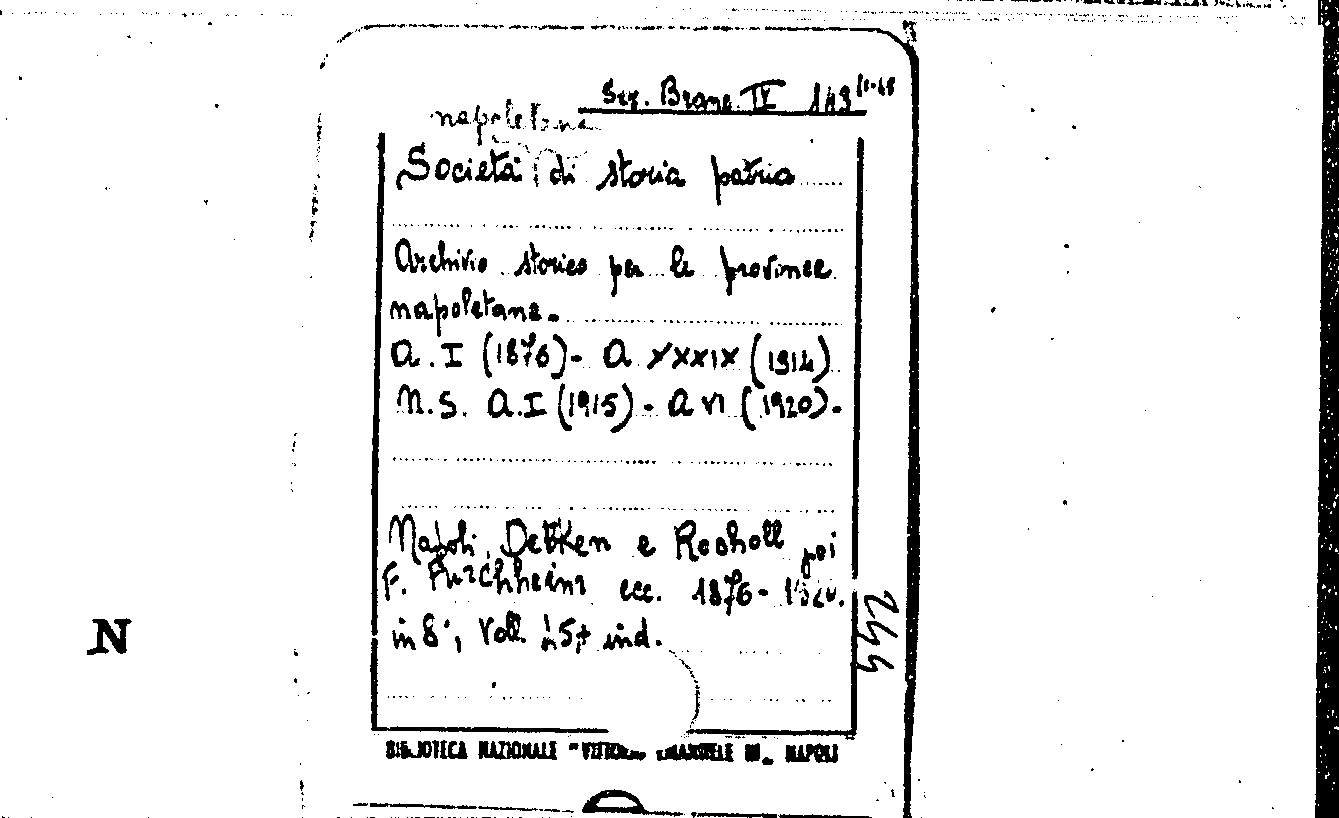 Sez. Branc. IV 149
napoletana
Società di storia patria
Archivio storico per le province
napoletane.
a. I (1876)- a XXXIX (1914)
n.s. a. I (1915) - a VI (1920).
Napoli, Detken e Rocholl poi
F. Furchheim ecc. 1876-1920.
in 8°, voll. 45+ ind.
244
N
BIBLIOTECA NAZIONALE "VITTORIO EMANUELE III„ NAPOLI